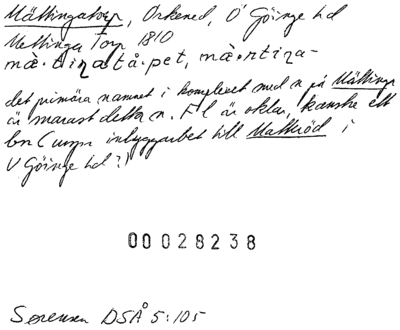 Mättingatorp, Örkened, Ö Göinge hd
Mettinga Torp 1810
mæ·tiŋatå·pet, mæ·rtiŋa-
det primära namnet i komplexet med n på Mättinge
är snarast detta n. Fl är oklar, kanske ett
bn ( inbyggarbet till Mattröd i
V Göinge hd ?)
00028238
Sørensen DSÅ 5:105